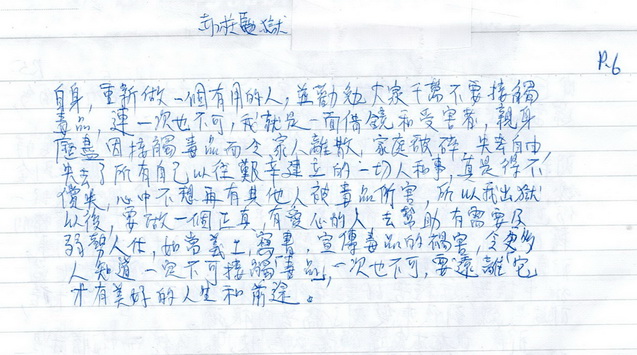 赤柱監獄
P.6
自身，重新做一個有用的人，並勸勉大家千萬不要接觸
毒品，連一次也不可，我就是一面借鏡和受害者，親身
歷盡因接觸毒品而令家人離散，家庭破碎，失去自由，
失去了所有自己以往艱辛建立的一切人和事，真是得不
償失，心中不想再有其他人被毒品所害，所以我出獄
以後，要做一個正真，有愛心的人去幫助有需要及
弱勢人仕，如當義工，寫書，宣傳毒品的禍害，令更多
人知道一定不可接觸「毒品」，一次也不可，要遠離它
才有美好的人生和前途。